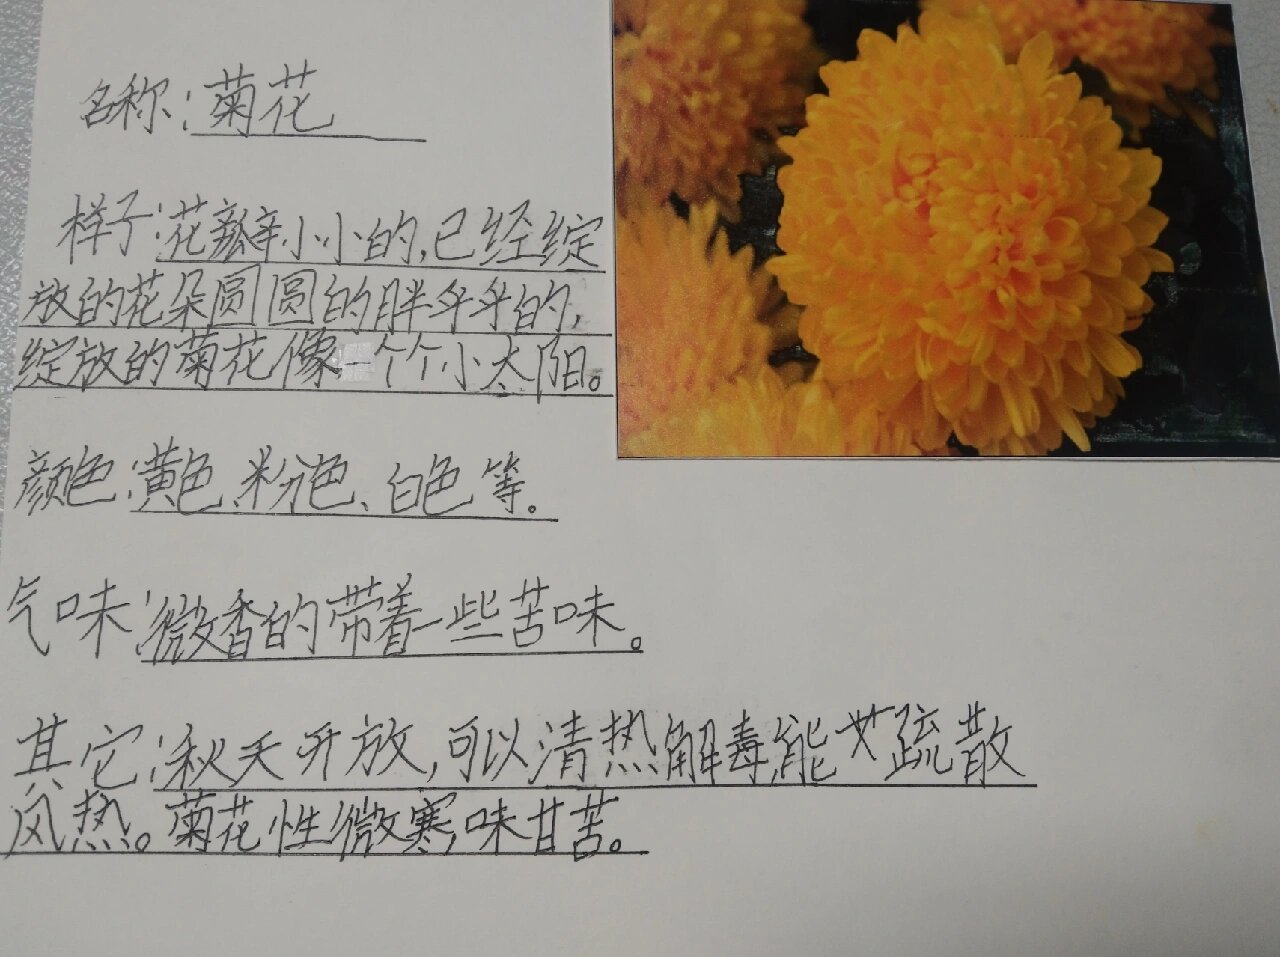 名称:菊花
样子:花瓣小小的,已经绽
放的花朵圆圆的胖乎乎的,
绽放的菊花像一个个小太阳。
颜色:黄色、粉色、白色等。
气味:微香的带着一些苦味。
其它:秋天开放,可以清热解毒,能疏散
风热。菊花性微寒,味甘苦。